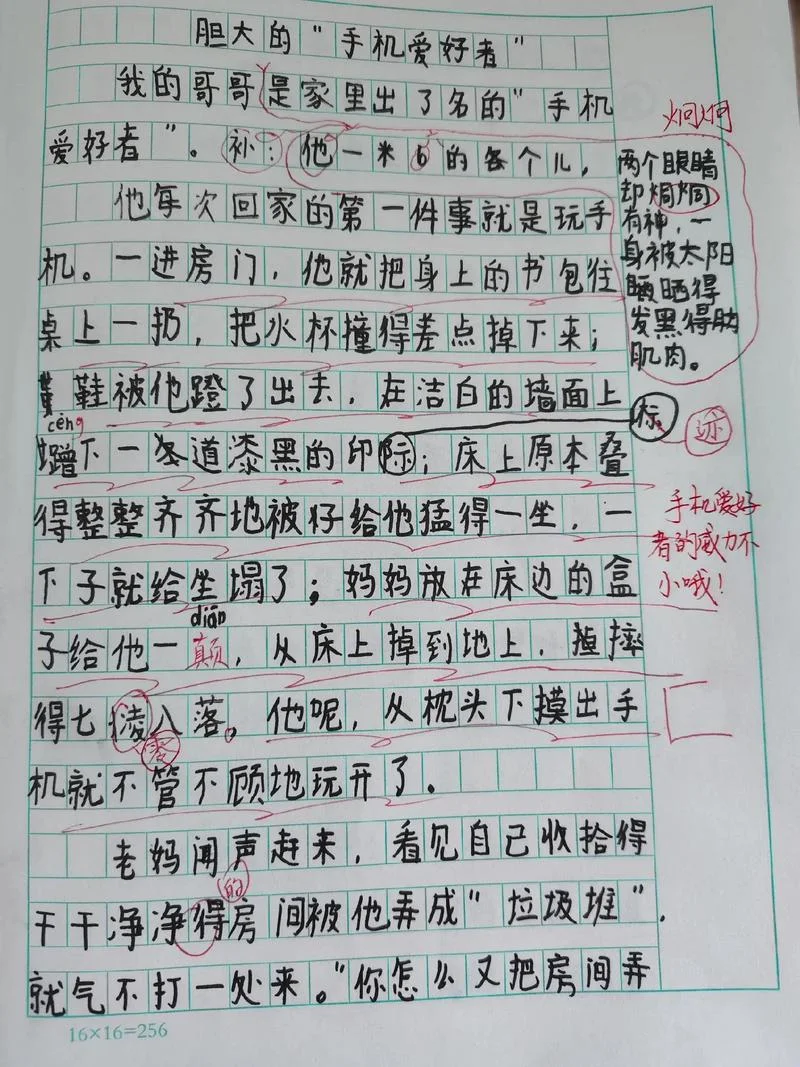 胆大的"手机爱好者"
我的哥哥是家里出了名的"手机
爱好者"。补:他一米6的各个儿,
两个眼睛
却炯炯
有神,一
身被太阳
晒得
发黑得
肌肉。
炯炯
他每次回家的第一件事就是玩手
机。一进房门,他就把身上的书包往
桌上一扔,把水杯撞得差点掉下来;
鞋被他蹬了出去,在洁白的墙面上
cèng
蹭下一道漆黑的印际;床上原本叠
标
迹
得整整齐齐地被好给他猛得一坐,一
下子就给坐塌了;妈妈放在床边的盒
手机爱好
者的威力不
小哦!
diān
子给他一颠,从床上掉到地上,摔
得七凌八落。他呢,从枕头下摸出手
零
机就不管不顾地玩开了.
老妈闻声赶来,看见自己收拾得
的
干干净净得房间被他弄成"垃圾堆".
就气不打一处来。"你怎么又把房间弄
16×16=256